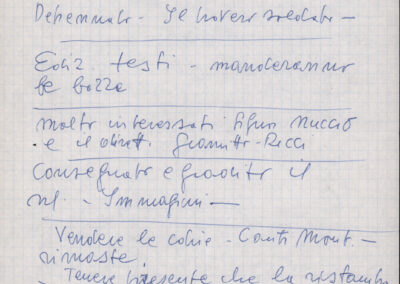 Il povero soldato -
Ediz. testi - manderanno
le bozze
molto interessati figlia Nuccio
e il dirett. Giannotto-Ricci
Consegnato e gradito il
- Immagini -
Vendere le copie - Canti Mont. -
rimaste.
- Tenere presente che la ristampa